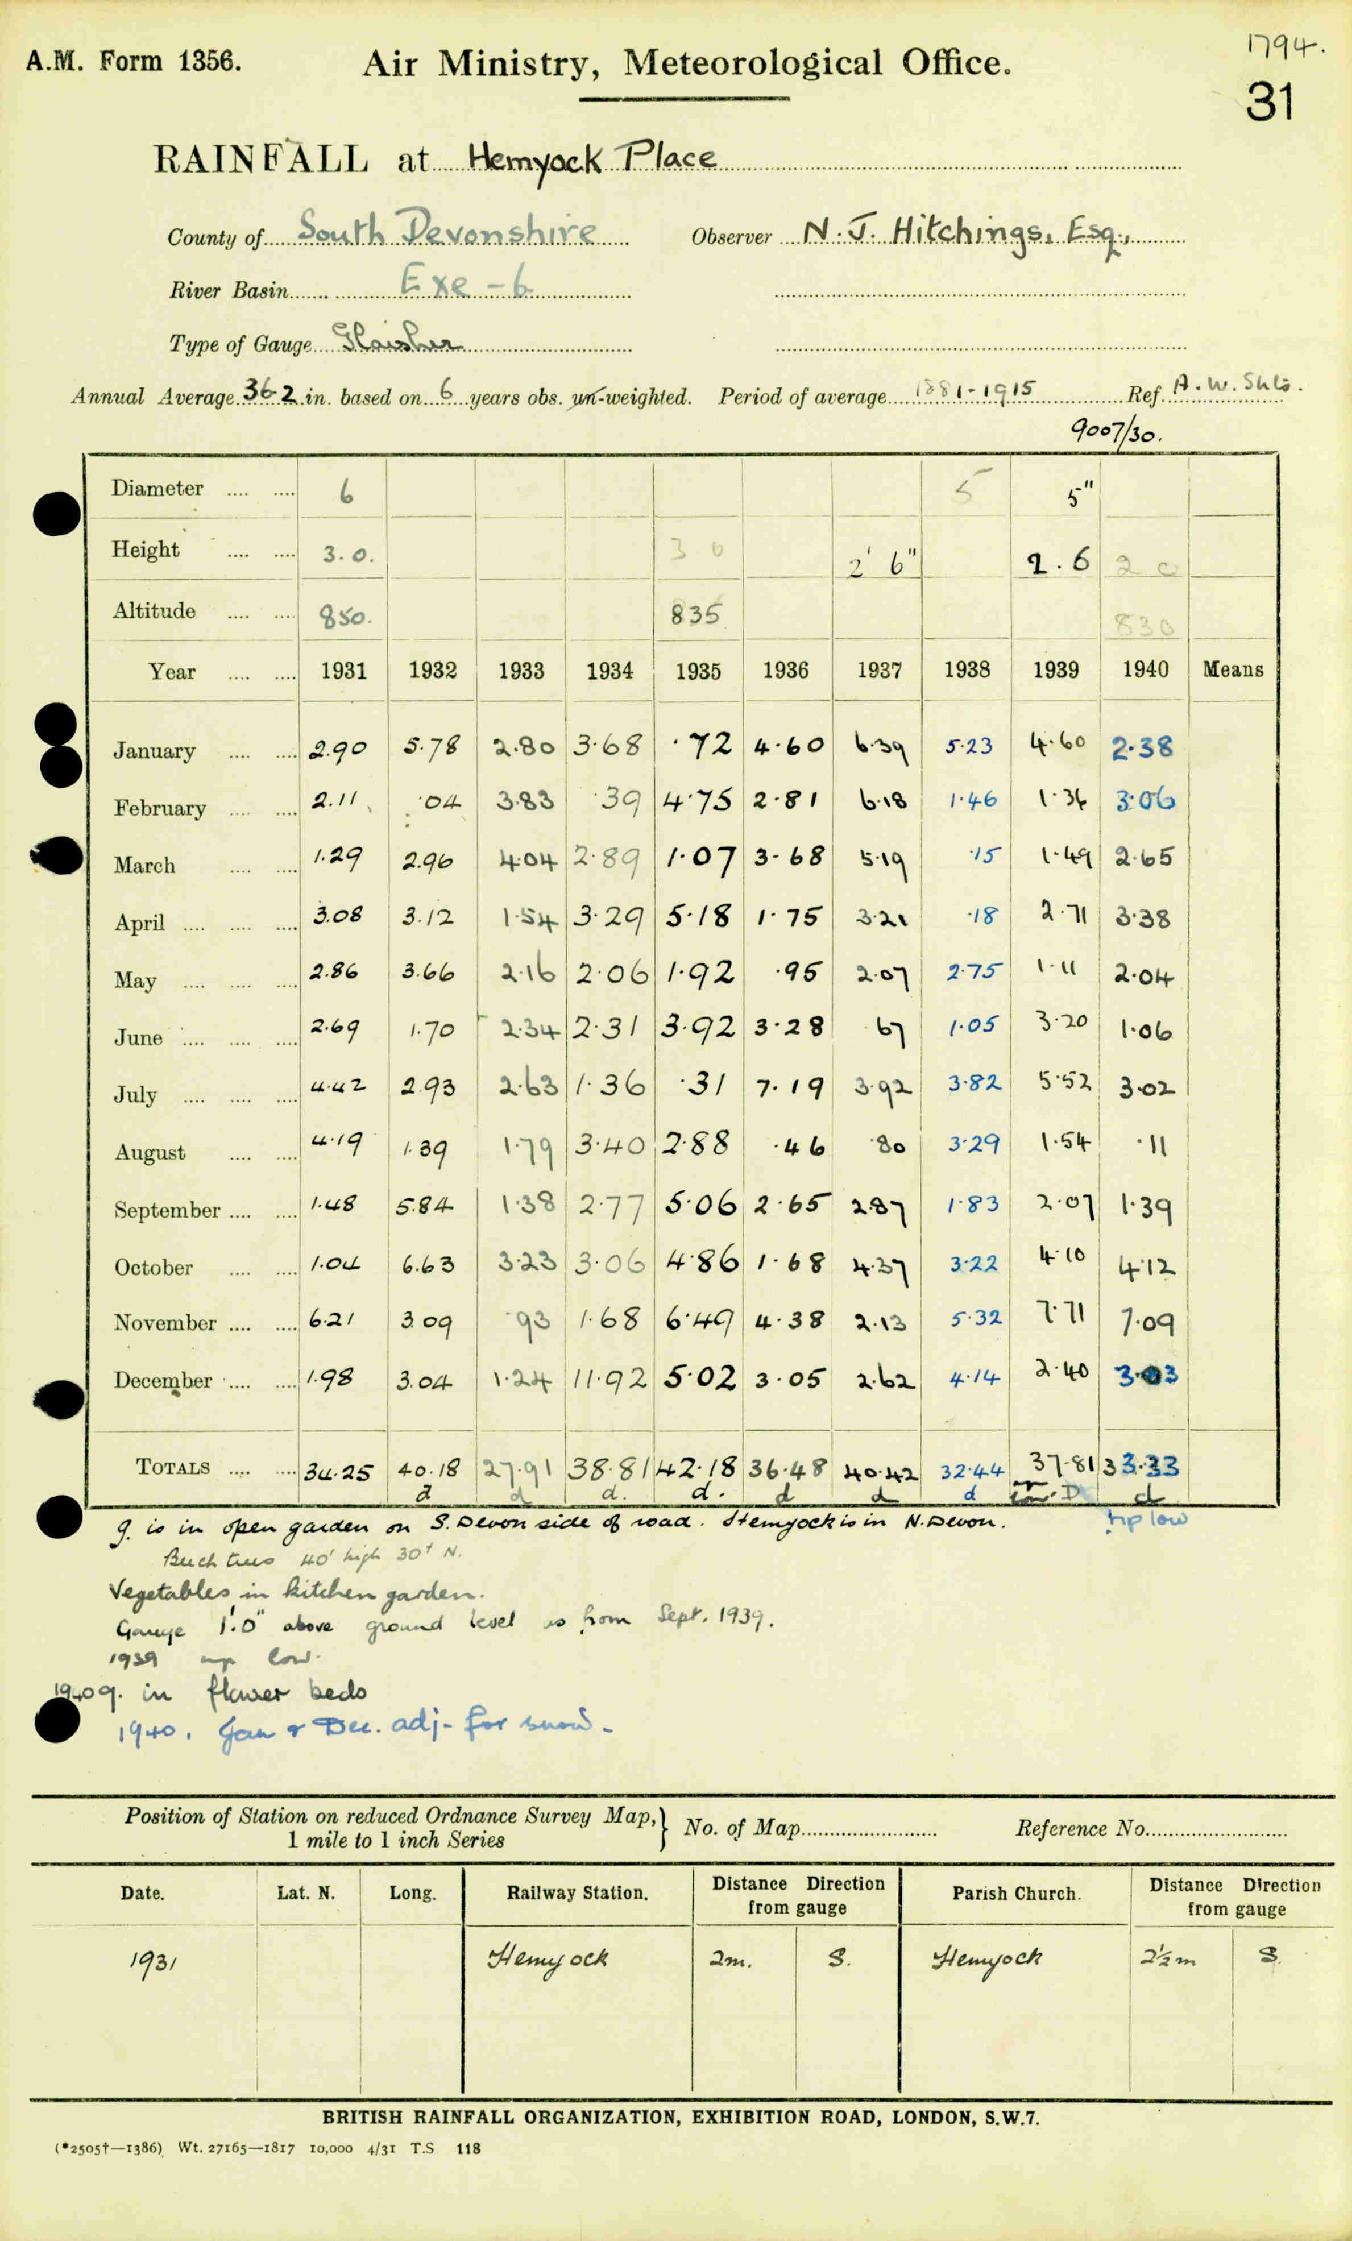 1794.
A.M. Form 1356. Air Ministry, Meteorological Office.
31
RAINFALL at Hemyock Place
County of South Devonshire Observer N. J. Hitchings, Esq.,
River Basin Exe - 6
Type of Gauge Glaisher
Annual Average 36.2 in. based on 6 years obs. un-weighted. Period of average 1881-1915 Ref. A.W. Shts.
9007/30.
Diameter 6 5 5"
Height 3. 0. 3 0 2' 6" 2. 6 2 0
Altitude 850. 835 830
Year 1931 1932 1933 1934 1935 1936 1937 1938 1939 1940 Means
January 2.90 5.78 2.80 3.68 .72 4.60 6.39 5.23 4.60 2.38
February 2.11 .04 3.83 .39 4.75 2.81 6.18 1.46 1.36 3.06
March 1.29 2.96 4.04 2.89 1.07 3.68 5.19 .15 1.49 2.65
April 3.08 3.12 1.54 3.29 5.18 1.75 3.21 .18 2.71 3.38
May 2.86 3.66 2.16 2.06 1.92 .95 2.07 2.75 1.11 2.04
June 2.69 1.70 2.34 2.31 3.92 3.28 67 1.05 3.20 1.06
July 4.42 2.93 2.63 1.36 .31 7.19 3.92 3.82 5.52 3.02
August 4.19 1.39 1.79 3.40 2.88 .46 .80 3.29 1.54 .11
September 1.48 5.84 1.38 2.77 5.06 2.65 2.87 1.83 2.07 1.39
October 1.04 6.63 3.23 3.06 4.86 1.68 4.37 3.22 4.10 4.12
November 6.21 3.09 .93 1.68 6.49 4.38 2.13 5.32 7.71 7.09
December 1.98 3.04 1.24 11.92 5.02 3.05 2.62 4.14 2.40 3.03
TOTALS 34.25 40.18 27.91 38.81 42.18 36.48 40.42 32.44 37.81 33.33
d d d. d. d d d D d
g. is in open garden on S. Devon side of road. Hemyock is in N. Devon. hp low
Beech trees 40' high 30' N.
Vegetables in kitchen garden.
Gauge 1'.0" above ground level as from Sept. 1939.
1939 low.
1940 g. in flower beds
1940. Jan & Dec. adj- for snow.
Position of Station on reduced Ordnance Survey Map, } No. of Map Reference No.
1 mile to 1 inch Series
Date. Lat. N. Long. Railway Station. Distance Direction from gauge Parish Church. Distance Direction from gauge
1931 Hemyock 2m. S. Hemyock 2½m S.
BRITISH RAINFALL ORGANIZATION, EXHIBITION ROAD, LONDON, S.W.7.
(*2505†—1386) Wt. 27165—1817 10,000 4/31 T.S 118